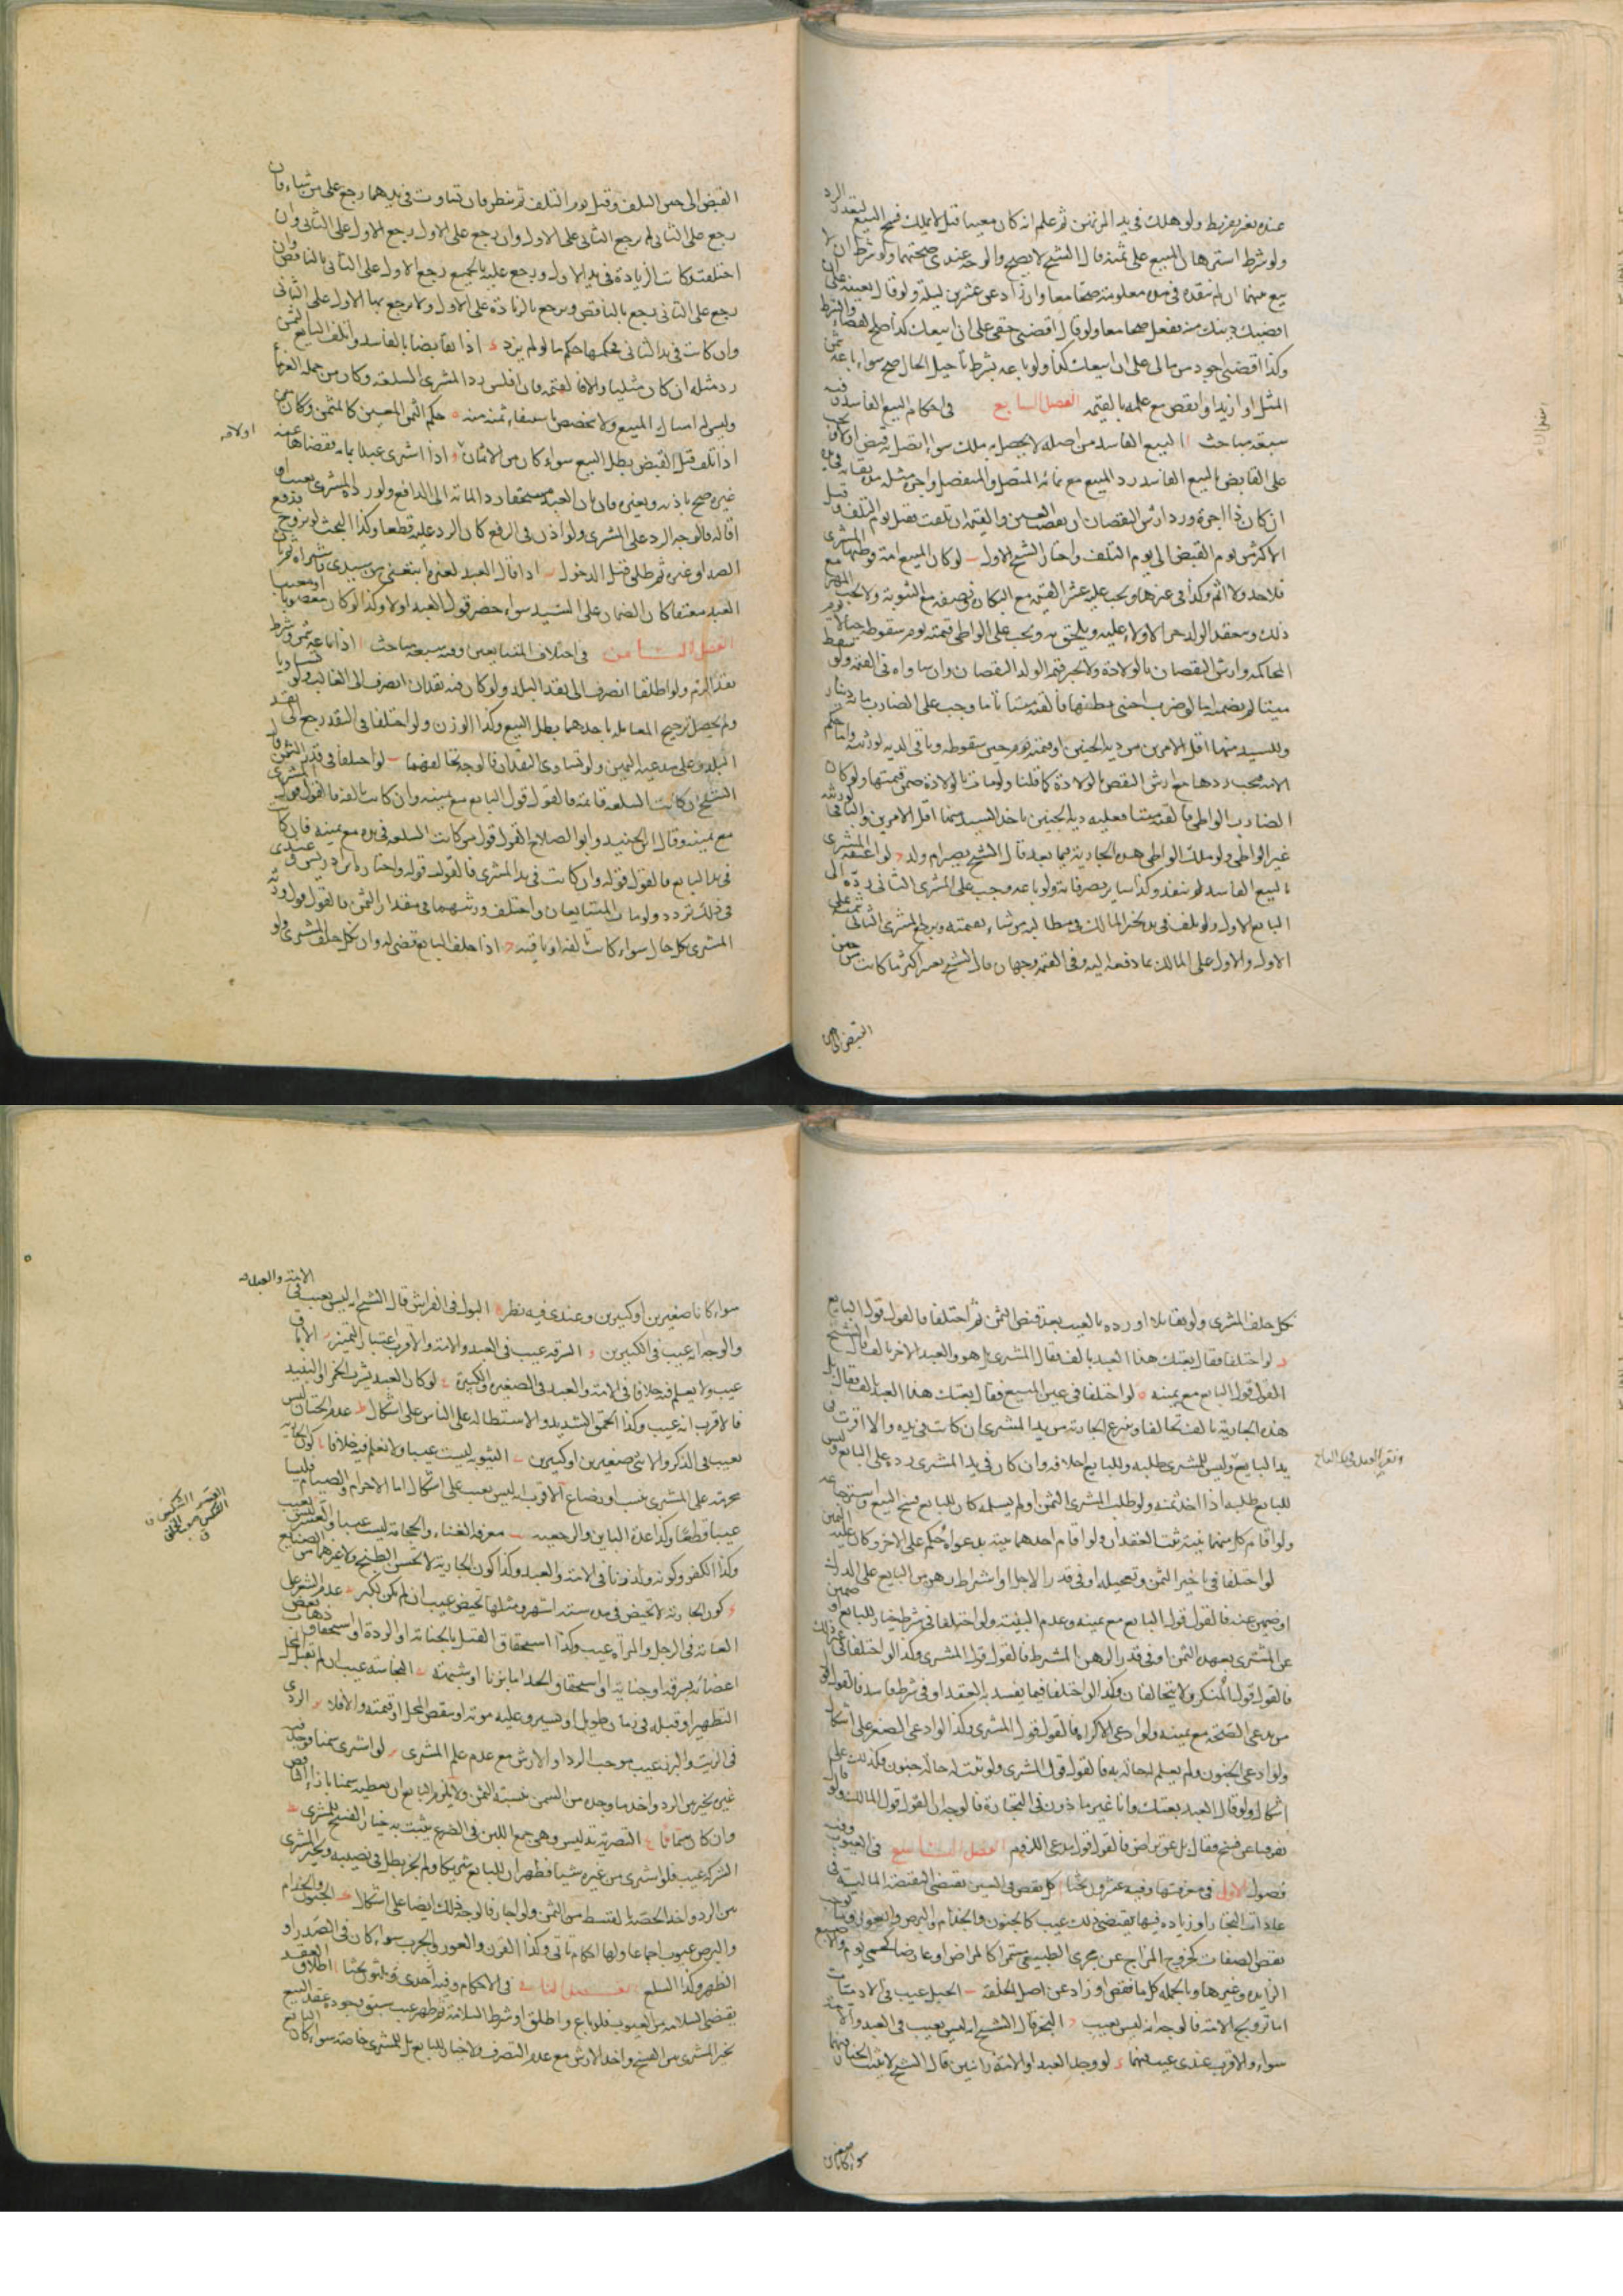 عنده بغير تفريط ولو هلك في يد المرتهن ثم علم انه كان معيبا قبل لا يملك فسخ البيع لتعذر الرد
ولو شرط استرهان المبيع على ثمنه قال الشيخ لا يصح والوجه عندي صحتهما ولو شرط ان لا
بيع بينهما ان لم ينقده في مدة معلومة صحا معا وان زادعى عشرين ليلة ولو قال بعنيه على ان
اقضيك دينك منه ففعل صحا معا ولو قال اقضني حقي على ان ابيعك كذا صح القضاء والشرط
وكذا اقضني اجود من مالي على ان ابيعك كذا ولو باعه بشرط تاجيل الحال صح سواء باعه بثمن
المثل او ازيد او انقص مع علمه بالقيمة الفصل السابع في احكام البيع الفاسد وفيه
سبعة مباحث ا البيع الفاسد من اصله لا يحصل به ملك سواء اتصل به قبض او لا ويجب
على القابض بالبيع الفاسد رد المبيع مع نمائه المتصل والمنفصل واجرة مثله مدة بقائه في يده
ان كان ذا اجرة ورد ارش النقصان ان نقصت العين والقيمة ان تلفت فقيل يوم التلف وقيل
الاكثر من يوم القبض الى يوم التلف واختار الشيخ الاول ب لو كان المبيع امة فوطئها المشتري
فلا حد ولا اثم وكذا في غيرها ويجب عليه عشر القيمة مع البكارة ونصفه مع الثيوبة ولا يجب المهر مع
ذلك وينعقد الولد حرا لا ولاء عليه ويلحق به ويجب على الواطي قيمته يوم سقوطه حيا لا يوم
المحاكمة وارش النقصان بالولادة ولا تجبر قيمة الولد النقصان وان ساواه في القيمة ولو سقط
ميتا لم يضمنه اما لو ضرب اجنبي بطنها فالقته ميتا تاما وجب على الضارب مائة دينار
وللسيد منها اقل الامرين من دية الجنين او قيمته يوم حين سقوطه وباقي الدية لورثته واما حكم
الامة فيجب ردها مع ارش النقص بالولادة كما قلنا ولو ماتت بالولادة ضمن قيمتها ولو كان
الضارب الواطي فالقته ميتا فعليه دية الجنين ياخذ السيد منها اقل الامرين والباقي لورثته
غير الواطي ولو ملك الواطي هذه الجارية فيما بعد قال الشيخ تصير ام ولد د لو اعتقه المشتري
بالبيع الفاسد لم ينفذ وكذا ساير تصرفاته ولو باعه وجب على المشتري الثاني رده الى
البايع الاول ولو تلف في يده تخير المالك في مطالبة من شاء بقيمته ويرجع المشتري الثاني بثمنه على
الاول والاول على المالك بما دفعه اليه وفي القيمة وجهان قال الشيخ يعتبر اكثر ما كانت من حين
القبض الى حين
القبض الى حين التلف وقيل يوم التلف ثم ينظر فان تساوت في يديهما رجع على من شاء فان
رجع على الثاني لم يرجع الثاني على الاول وان رجع على الاول رجع الاول على الثاني وان
اختلفت وكانت الزيادة في يد الاول ورجع عليه بالجميع رجع الاول على الثاني بالناقص وان
رجع على الثاني رجع بالناقص ويرجع بالزيادة على الاول ولا يرجع بها الاول على الثاني
وان كانت في يد الثاني فحكمها حكم ما لو لم يزد د اذا تقابضا بالفاسد واتلف البايع الثمن
رد مثله ان كان مثليا والا فالقيمة فان افلس رد المشتري السلعة وكان من جملة الغرماء
وليس له امساك المبيع ولا تخصص باستيفاء ثمنه منه ه حكم الثمن المعين كالمثمن وكان متى
اذا تلف قبل القبض بطل البيع سواء كان من الاثمان او لا و اذا اشترى عبدا بمائة فقضاها عنه
غيره صح باذنه وبغيره فان بان العبد مستحقا رد المائة الى الدافع ولو رده المشتري بعيب او
اقالة فالوجه الرد على المشتري ولو اذن في الدفع كان الرد عليه قطعا وكذا البحث لو تزوج فدفع
الصداق غيره ثم طلق قبل الدخول ز اذا قال العبد لغيره ابتعني من سيدي فاشتراه فبان
العبد معتقا كان الضمان على السيد سواء حضر قول العبد او لا وكذا لو كان مغصوبا او معيبا
الفصل الثامن في اختلاف المتبايعين وفيه سبعة مباحث ا اذا باعه بثمن وشرط
نقدا لزم ولو اطلقا انصرف الى نقد البلد ولو كان فيه نقدان انصرف الى الغالب ولو تساويا
ولم يحصل ترجيح المعاملة باحدهما بطل البيع وكذا الوزن ولو اختلفا في النقد رجع الى نقد
البلد وعلى مدعيه اليمين ولو تساوى النقدان فالوجه تحالفهما ب لو اختلفا في قدر الثمن قال
الشيخ ان كانت السلعة قائمة فالقول قول البايع مع يمينه وان كانت تالفة فالقول قول المشتري
مع يمينه وقال ابن الجنيد وابو الصلاح القول قول من كانت السلعة في يده مع يمينه فان كان
في يد البايع فالقول قوله وان كانت في يد المشتري فالقول قوله واختاره ابن ادريس وعندي
في ذلك تردد ولو مات المتبايعان واختلف ورثتهما في مقدار الثمن فالقول قول ورثة
المشتري بكل حال سواء كانت تالفة او باقية د اذا حلف البايع قضي له وان نكل حلف المشتري ولو
نكل حلف المشتري ولو تقايلا او رده بالعيب بعد قبض الثمن ثم اختلفا فالقول قول البايع
د لو اختلفا فقال بعتك هذا العبد بالف فقال المشتري بل هو والعبد الاخر بالف قال الشيخ
القول قول البايع مع يمينه ه لو اختلفا في عين المبيع فقال بعتك هذا العبد بالف فقال بل
هذه الجارية بالف تحالفا وتنزع الجارية من يد المشتري ان كانت في يده والا اقرت في
يد البايع وليس للمشتري طلبه وللبايع احلافه وان كان في يد المشتري رده على البايع وليس
للبايع طلبه اذا اخذ ثمنه ولو طلب المشتري الثمن او لم يسلمه كان للبايع فسخ البيع واسترجاعه
ولو اقام كل منهما بينة ثبت العقدان ولو اقام احدهما بينة بدعواه حكم على الاخر وكان عليه اليمين
لو اختلفا في تاخير الثمن وتعجيله او في قدر الاجل او اشتراط رهن من البايع على الدرك
او ضمين عنه فالقول قول البايع مع يمينه وعدم البينة ولو اختلفا في شرط خيار للبايع او ضمين
عن المشتري بعهدة الثمن او في قدر الرهن بالشرط فالقول قول المشتري وكذا لو اختلفا في غير ذلك
فالقول قول المنكر ولا يتحالفان وكذا لو اختلفا فيما يفسد به العقد او في شرط فاسد فالقول قول
من يدعي الصحة مع يمينه ولو ادعى الاكراه فالقول قول المشتري وكذا لو ادعى الصغر على اشكال
ولو ادعى الجنون ولم يعلم له حالة به فالقول قول المشتري ولو ثبت له حالة جنون فكذلك على
اشكال ولو قال العبد بعتك وانا غير ماذون في التجارة فالوجه ان القول قول المالك ولو قال
تفرقنا عن فسخ فقال بل عن تراض فالقول قول مدعي اللزوم الفصل التاسع في العيوب وفيه
فصول الاول في معرفتها وفيه عشرون بحثا ا كل نقص في العين يقتضي النقيصة المالية في
عادات التجار او زيادة فيها يقتضي ذلك عيب كالجنون والجذام والبرص والعمى والعور ويثبت
نقص الصفات كخروج المزاج عن مجرى الطبيعي مستمرا كالممراض او عارضا كحمى يوم والاصبع
الزايدة وغيرها وبالجملة كل ما نقص او زاد عن اصل الخلقة ب الحبل عيب في الادميات
اما ترويج الامة فالوجه انه ليس بعيب د البخر قال الشيخ انه ليس بعيب في العبد والامة
سواء والاقرب عندي عيب فيهما د لو وجد العبد او الامة زانيين قال الشيخ لا يثبت الخيار فيهما
سواء كانا صغيرين
الامة والعبد
سواء كانا صغيرين او كبيرين وعندي فيه نظر ه البول في الفراش قال الشيخ انه ليس بعيب في
والوجه انه عيب في الكبيرين و السرقة عيب في العبد والامة والاقرب اعتبار التمييز ز الاباق
عيب ولا يعلم فيه خلافا في الامة والعبد في الصغير والكبيرة ح لو كان العبد يشرب الخمر او النبيذ
فالاقرب انه عيب وكذا الحمق الشديد والاستطالة على الناس على اشكال ط عدم الختان ليس
بعيب في الذكر والانثى صغيرين او كبيرين ي الثيوبة ليست عيبا ولا نعلم فيه خلافا يا كون الجارية
محرمة على المشتري بنسب او رضاع الاقرب انه ليس بعيب على اشكال اما الاحرام والصيام فليسا
عيبا قطعا وكذا عدة الباين والرجعية يب معرفة الغناء والحجامة ليست عيبا والعسر ليس بعيب
وكذا الكفر وكونه ولد زنا في الامة والعبد وكذا كون الجارية لا تحسن الطبخ ولا غيرها من الصنايع
كون الجارية لا تحيض في مدة ستة اشهر ومثلها تحيض عيب ان لم تكن بكر عدم الشعر على
العانة في الرجل والمرأة عيب وكذا استحقاق القتل بالجناية او الردة او استحقاق ذهاب بعض
اعضائه بسرقة او جناية او استحقاق الحد اما بزنا او شبهه النجاسة عيب ان لم تقبل
التطهير او قبله في زمان طويل او تعسر وعليه مؤنة او ينقص المحل او قيمته والا فلا الردي
في الزيت والبزر عيب موجب الرد او الارش مع عدم علم المشتري لو اشترى سمنا فوجد فيه
غيره تخير بين الرد واخذ ما وجد من السمن بنسبة الثمن ولا يلزم البايع ان يعطيه سمنا بازاء الناقص
وان كان سمانا التصرية تدليس وهي جمع اللبن في الضرع يثبت به خيار الفسخ للمشتري
الشركة عيب فلو اشترى من غيره شيئا فظهر ان للبايع شريكا ولم يجز بطل في نصيبه وتخير المشتري
بين الرد واخذ الحصة بالقسط من الثمن ولو اجاز فالوجه ذلك ايضا على اشكال الجنون والجذام
والبرص عيوب اجماعا ولها احكام تاتي وكذا القرن والعور والجرب سواء كان في الصدر او
الظهر وكذا السلع الفصل الثاني في الاحكام وفيه احدى وثلثون بحثا ا اطلاق العقد
يقتضي السلامة من العيوب فلو باع واطلق او شرط السلامة ثم ظهر عيب سبق وجوده عقد البيع
تخير المشتري بين الفسخ واخذ الارش مع عدم التصرف ولا خيار للبايع بل للمشتري خاصة سواء كان البايع